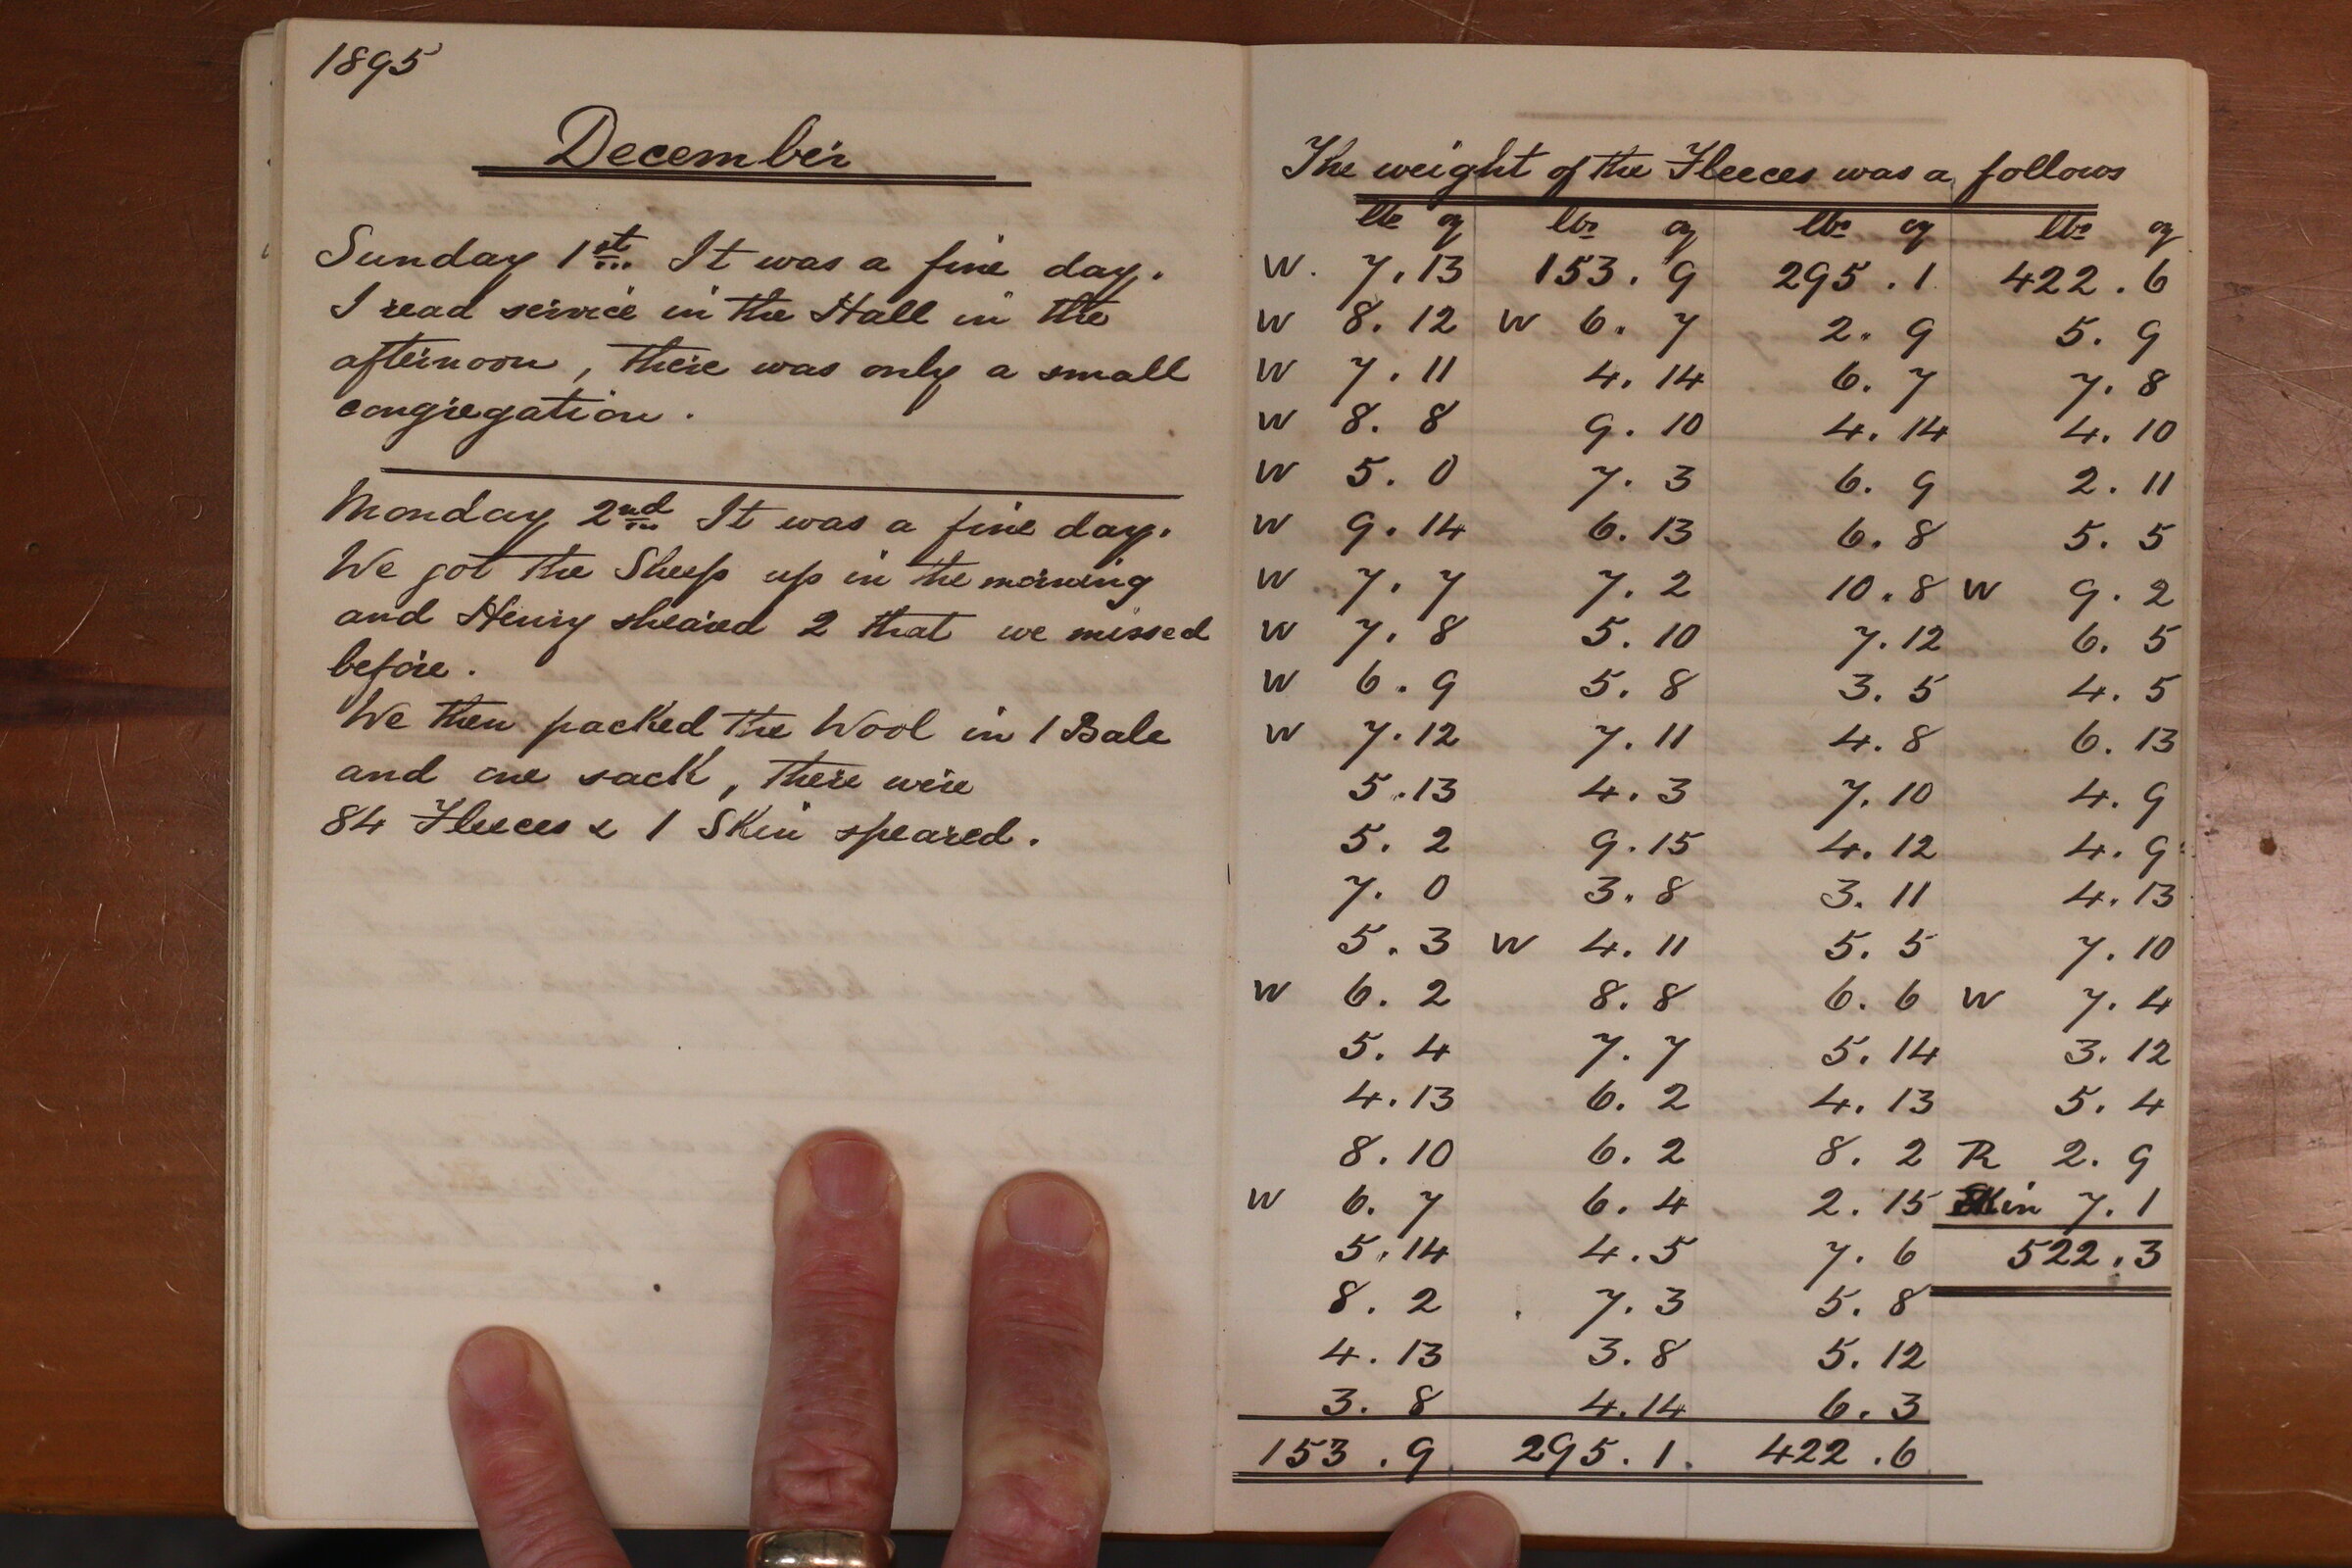 1895
December
Sunday 1st It was a fine day.
I read service in the Hall in the
afternoon, there was only a small
congregation.
Monday 2nd It was a fine day.
We got the Sheep up in the morning
and Henry sheared 2 that we missed
before.
We then packed the Wool in 1 Bale
and one sack, there were
84 Fleeces & 1 Skin speared.
The weight of the Fleeces was a follows
lbs oz lbs oz lbs oz lbs oz
W. 7.13 153.9 295.1 422.6
W 8.12 W 6.7 2.9 5.9
W 7.11 4.14 6.7 7.8
W 8.8 9.10 4.14 4.10
W 5.0 7.3 6.9 2.11
W 9.14 6.13 6.8 5.5
W 7.7 7.2 10.8 W 9.2
W 7.8 5.10 7.12 6.5
W 6.9 5.8 3.5 4.5
W 7.12 7.11 4.8 6.13
5.13 4.3 7.10 4.9
5.2 9.15 4.12 4.9
7.0 3.8 3.11 4.13
5.3 W 4.11 5.5 7.10
W 6.2 8.8 6.6 W 7.4
5.4 7.7 5.14 3.12
4.13 6.2 4.13 5.4
8.10 6.2 8.2 R 2.9
W 6.7 6.4 2.15 Skin 7.1
5.14 4.5 7.6 522.3
8.2 7.3 5.8
4.13 3.8 5.12
3.8 4.14 6.3
153.9 295.1. 422.6